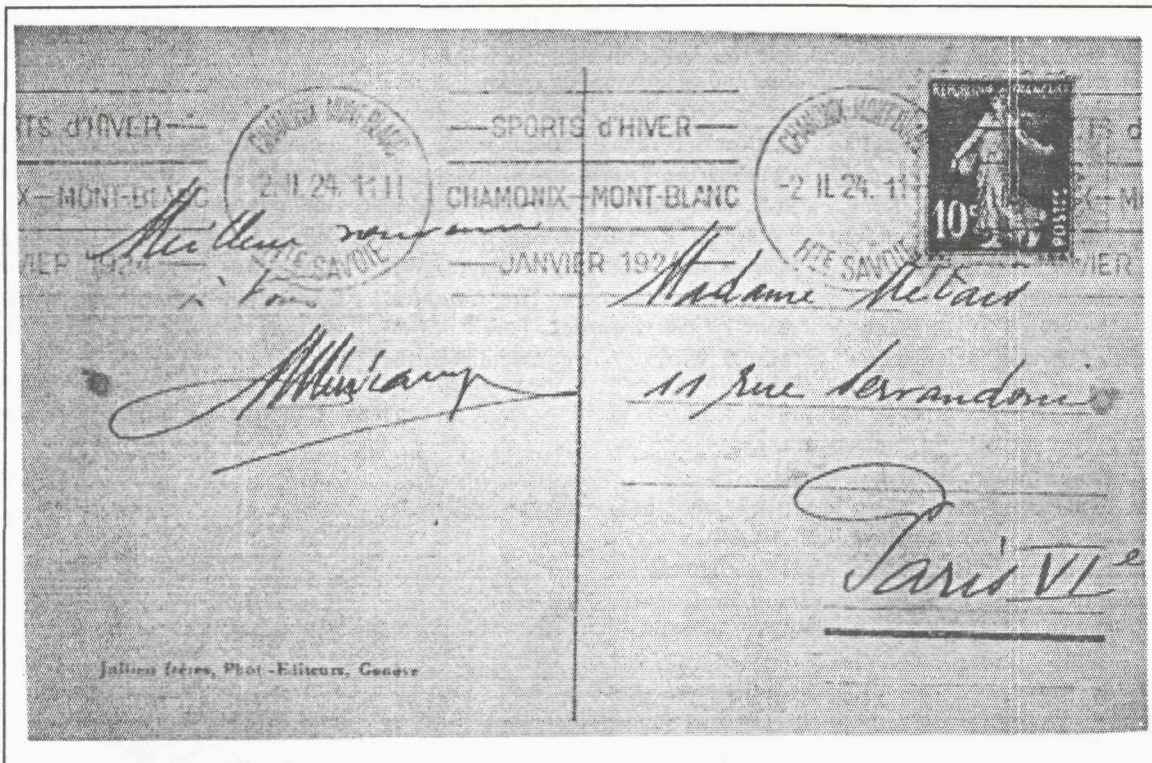 RTS d'HIVER
X-MONT-BLANC
VIER 1924
CHAMONIX MONT-BLANC
-2.II.24. 11H
HTE SAVOIE
SPORTS d'HIVER
CHAMONIX-MONT-BLANC
JANVIER 192
CHAMONIX-MONT-BL
-2 II.24. 11
HTE SAVOIE
REPUBLIQUE FRANÇAISE
10c
POSTES
TS d
X-M
VIER
Meilleur souvenir
à tous
Madame Métais
11 rue Servandoni
Paris VIe
Jullien frères, Phot.-Editeurs, Genève